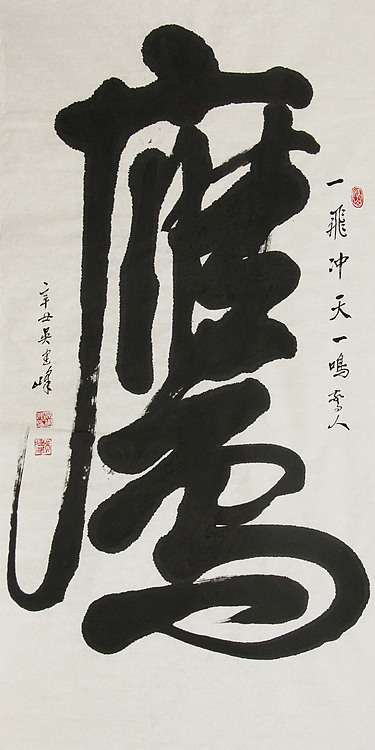 一飛冲天一鳴驚人
鷹
辛丑吴建峰